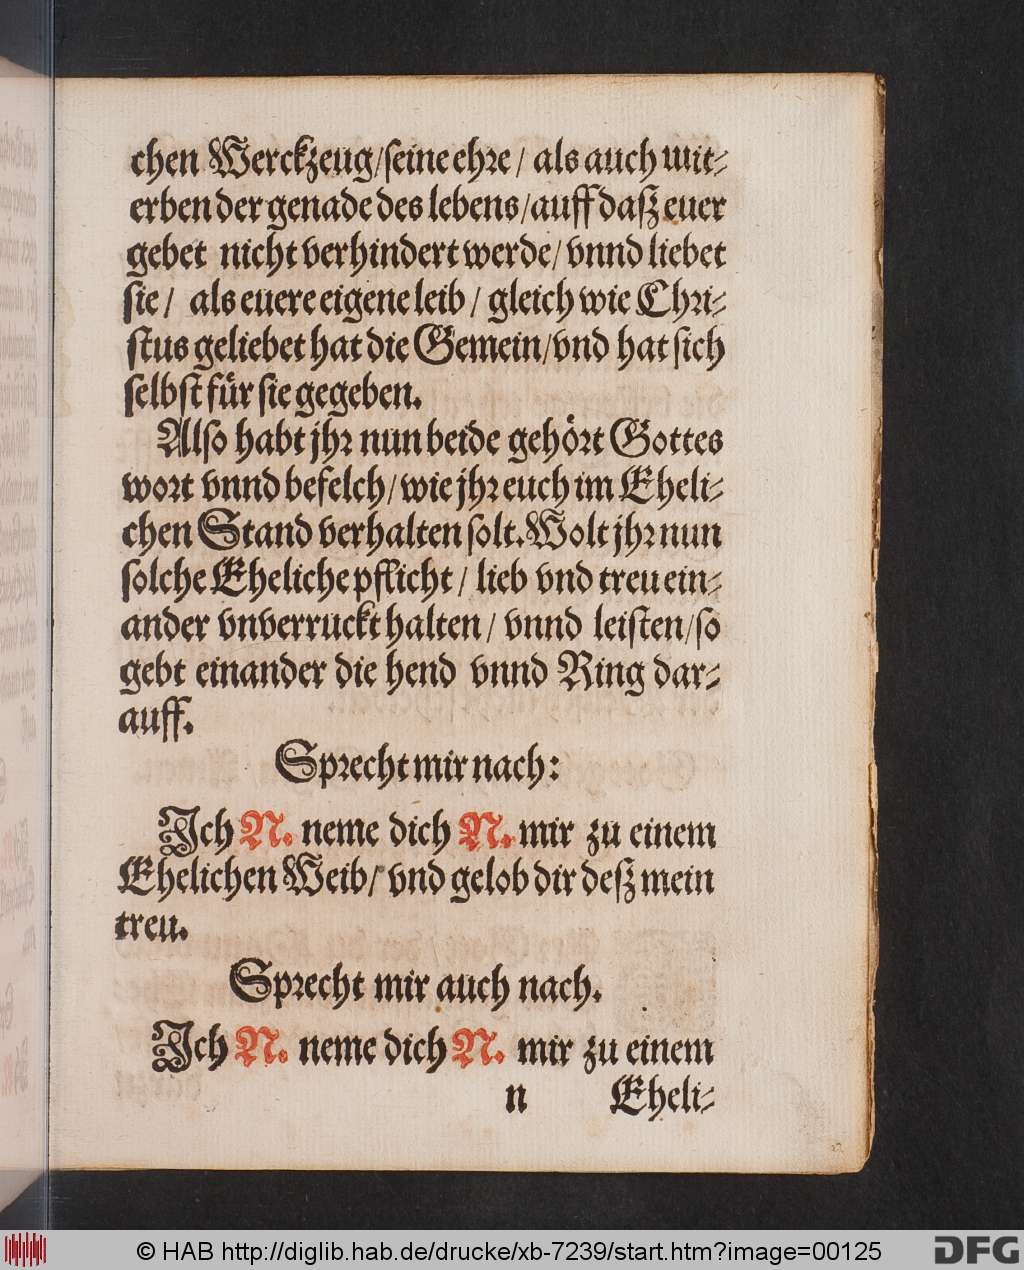 chen Werckzeug/seine ehre/ als auch mit⸗
erben der genade des lebens/auff daſz euer
gebet nicht verhindert werde/ vnnd liebet
ſie/ als euere eigene leib/ gleich wie Chri⸗
ſtus geliebet hat die Gemein/vnd hat ſich
ſelbſt fuͤr ſie gegeben.
Alſo habt jhr nun beide gehoͤrt Gottes
wort vnnd befelch/wie jhr euch im Eheli⸗
chen Stand verhalten ſolt. Wolt jhr nun
ſolche Eheliche pflicht/ lieb vnd treu ein⸗
ander vnverruckt halten/ vnnd leiſten/ſo
gebt einander die hend vnnd Ring dar⸗
auff.
Sprecht mir nach:
Ich N. neme dich N. mir zu einem
Ehelichen Weib/ vnd gelob dir deſz mein
treu.
Sprecht mir auch nach.
Ich N. neme dich N. mir zu einem
n Eheli⸗
© HAB http://diglib.hab.de/drucke/xb-7239/start.htm?image=00125
DFG